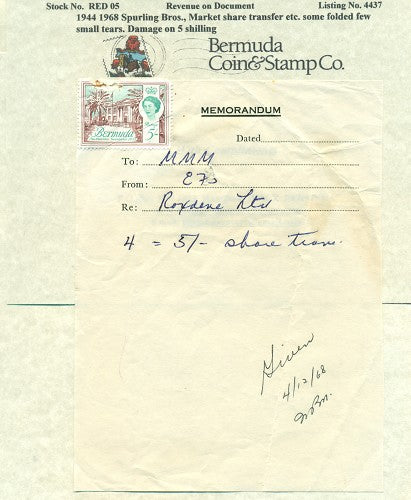 Stock No. RED 05 Revenue on Document Listing No. 4437
1944 1968 Spurling Bros., Market share transfer etc. some folded few
small tears. Damage on 5 shilling
Bermuda
Coin & Stamp Co.
Bermuda
5/-
MEMORANDUM
Dated
To: MMM
From:
Re: Roxdene Ltd
4 = 5/- share trans.
Given
4/12/68